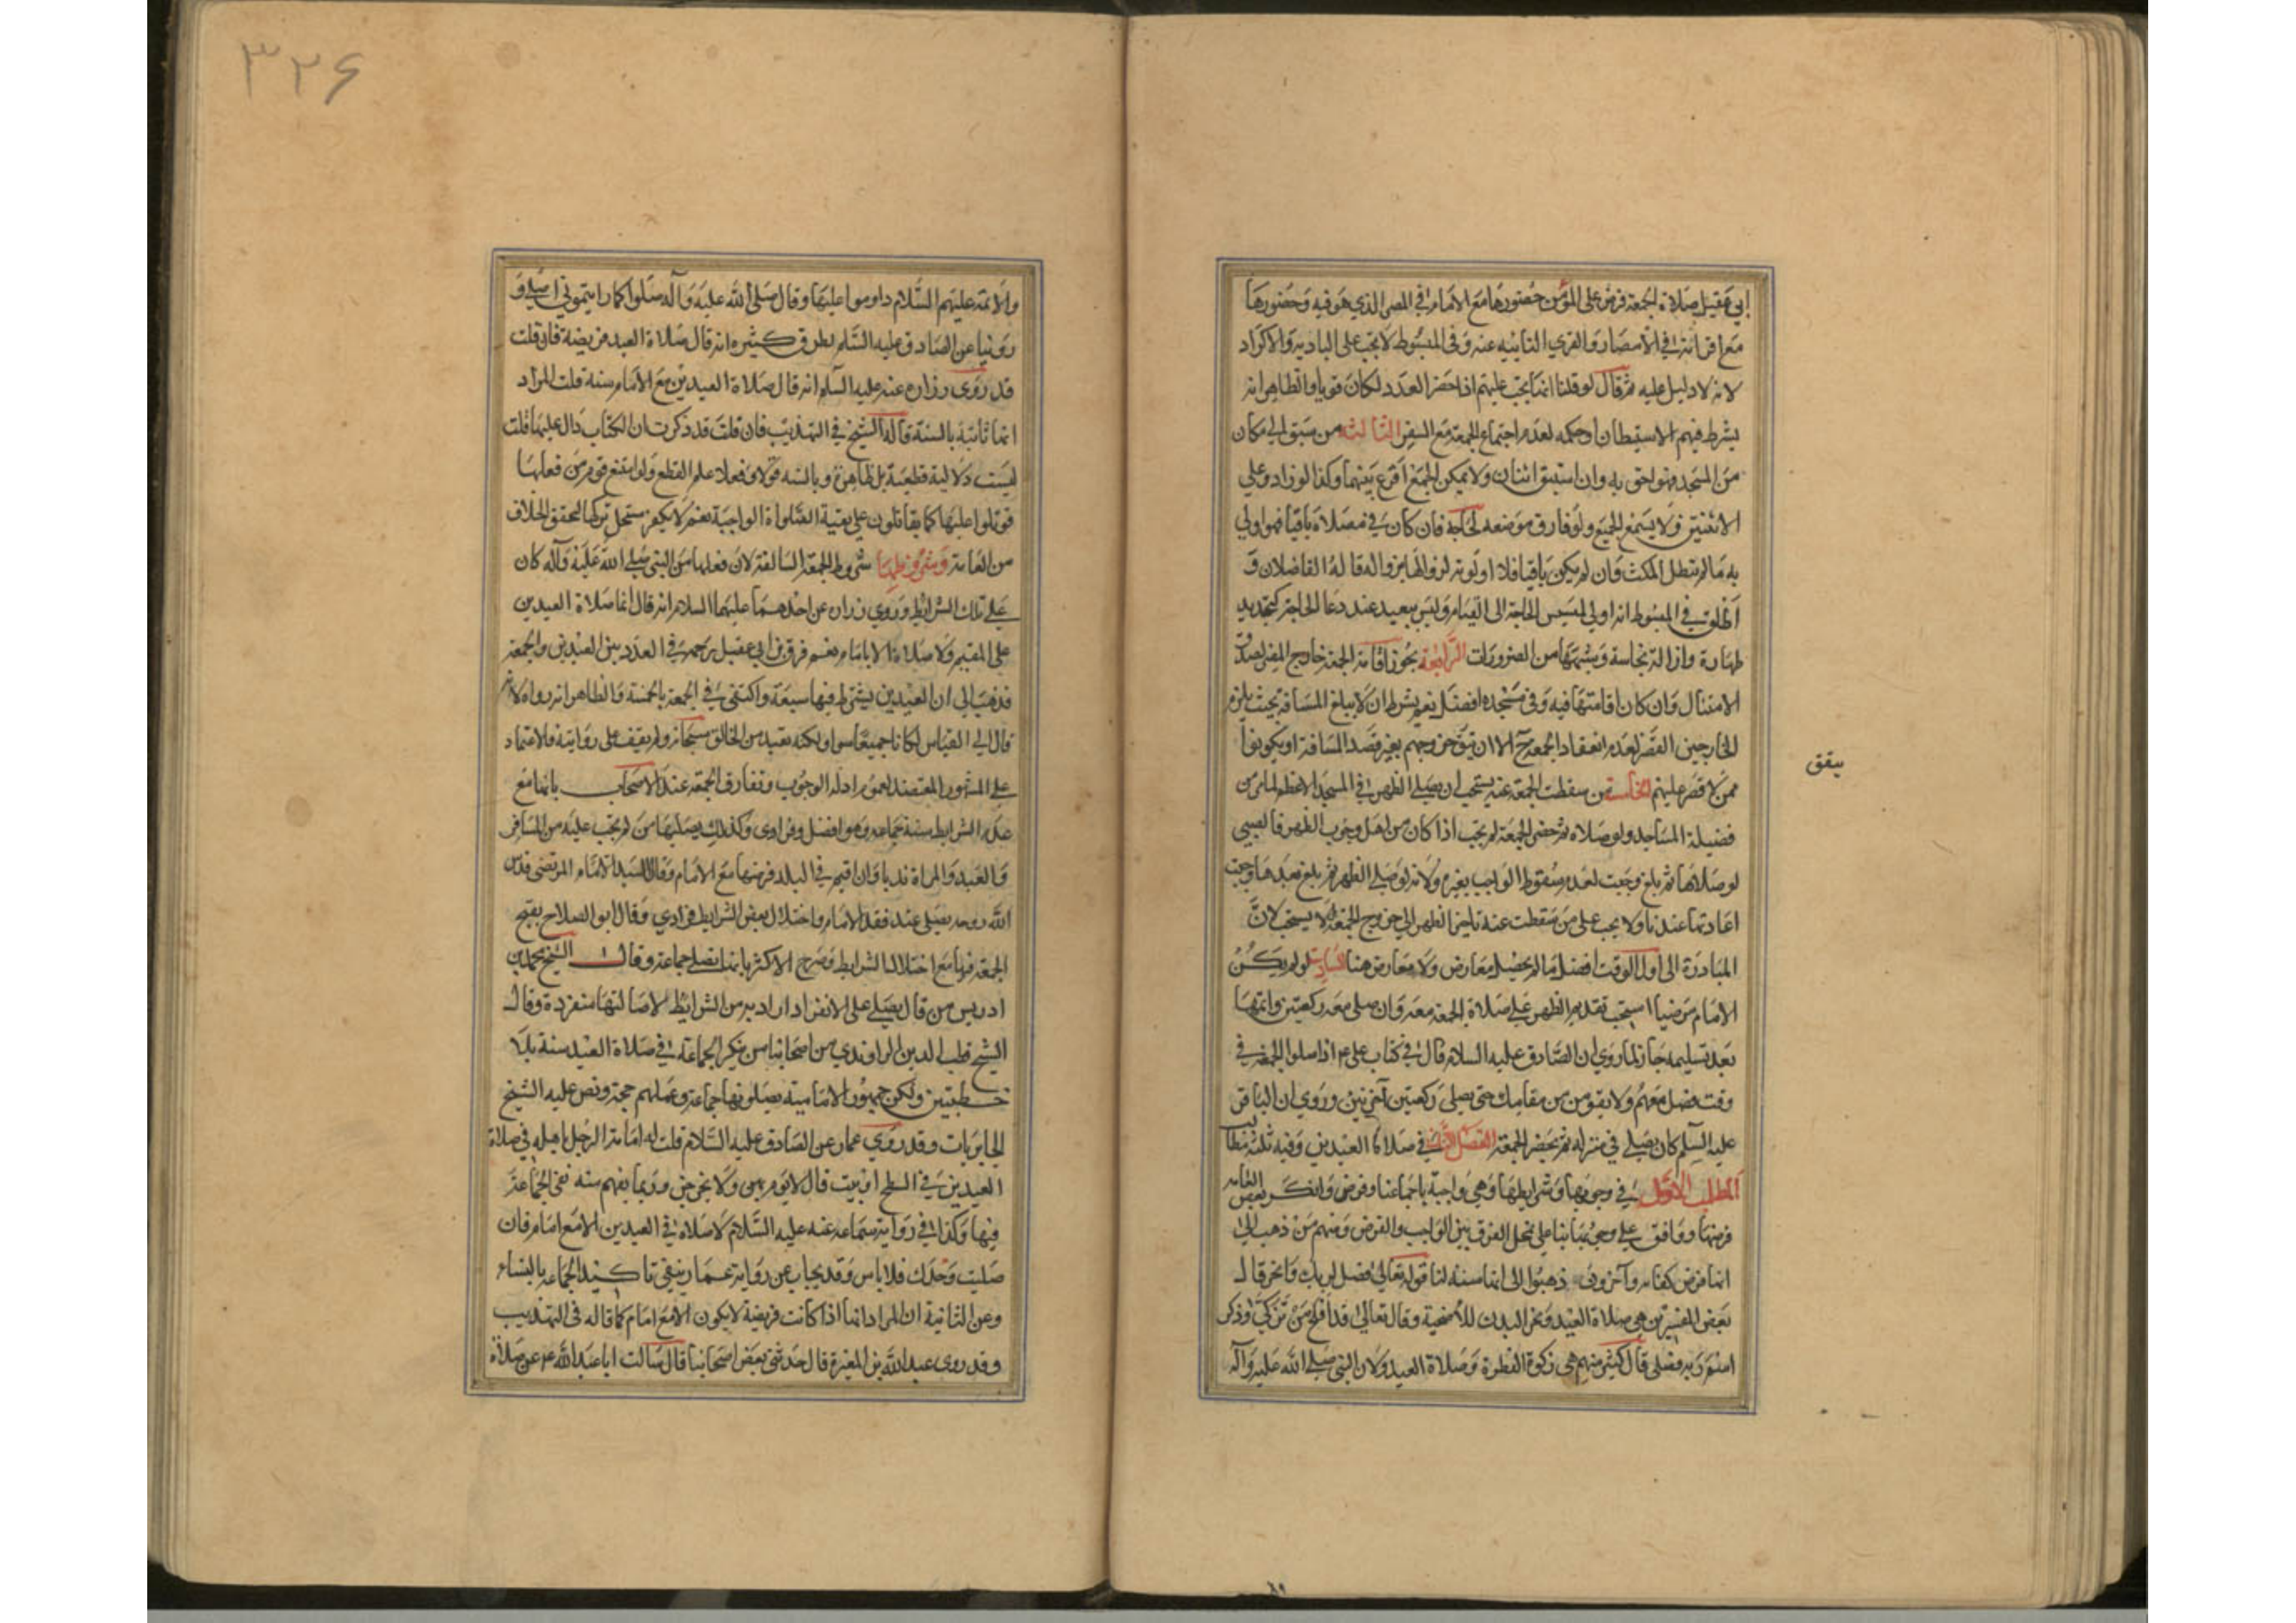 ابي عقيل صلاة الجمعة فرض على المؤمن حضورها مع الامام في المصر الذي هو فيه وحضورها
مع امرائه في الامصار والقرى النائية عنه وفي المبسوط لا تجب على البادية والاكراد
لانه لا دليل عليه ثم قال لو قلنا انما تجب عليهم اذا حضر العدد لكان قويا والظاهر انه
يشرط فيهم الاستيطان او حكمه لعدم اجتماع الجمعة مع السفر الثالثة من سبق الى مكان
من المسجد فهو احق به وان استبق اثنان ولا يمكن الجمع اقرع بينهما وكذا لو زادوا على
الاثنين ولا يسمع الجميع ولو فارق موضعه لحاجة فان كان في مصلاه باقيا فهو اولى
به ما لم يتطل المكث وان لم يكن باقيا فلا اولوية لزوالها بزواله قاله الفاضلان و
اطلق في المبسوط انه اولى لمسيس الحاجة الى القيام وليس ببعيد عند دعا الحاجة كتجديد
طهارة وازالة نجاسة وشبهها من الضرورات الرابعة يجوز اقامة الجمعة خارج المصر لصدق
الامتثال وان كان اقامتها فيه وفي مسجده افضل نعم يشرط ان لا يبلغ المسافة بحيث يلزم
الخارجين القصر لعدم انعقاد الجمعة ح الا ان يتفق خروجهم بغير قصد المسافة او يكونوا
ممن لا قصر عليهم الخامسة من سقطت الجمعة عنه يستحب ان يصلي الظهر في المسجد الاعظم لما مر من
فضيلة المساجد ولو صلاه ثم حضر الجمعة لم تجب اذا كان من اهل وجوب الظهر فالصبي
لو صلاها ثم بلغ وجبت لعدم سقوط الواجب بغيره ولانه لو صلى الظهر ثم بلغ بعدها وجبت
اعادتها عندنا ولا يجب على من سقطت عنه تاخير الظهر الى خروج الجمعة ولا يستحب لان
المبادرة الى اول الوقت افضل ما لم يحصل معارض ولا معارض هنا السادسة لو لم يكن
الامام مرضيا استحب تقديم الظهر على صلاة الجمعة معه وان صلى معه ركعتين واتمها
بعد تسليمه جاز لما روي ان الصادق عليه السلام قال في كتاب علي ع اذا صلوا الجمعة في
وقت فصل معهم ولا تقومن من مقامك حتى تصلي ركعتين اخريين وروي ان الباقر
عليه السلم كان يصلي في منزله ثم يحضر الجمعة الفصل الثاني في صلاة العيدين وفيه ثلثة مطالب
المطلب الاول في وجوبها وشرايطها وهي واجبة باجماعنا وفرض وانكر بعض العامة
فرضها ووافق على وجوبها بناء على تخيل الفرق بين الواجب والفرض ومنهم من ذهب الى
انها فرض كفاية وآخرون ذهبوا الى انها سنة لنا قوله تعالى فصل لربك وانحر قال
بعض المفسرين هي صلاة العيد ونحر البدن للاضحية وقال تعالى قد افلح من تزكى وذكر
اسم ربه فصلى قال كثير منهم هي زكوة الفطرة وصلاة العيد ولان النبي صلى الله عليه وآله
يتفق
٣٢۶
والائمة عليهم السلام داوموا عليها وقال صلى الله عليه وآله صلوا كما رايتموني اصلي و
روينا عن الصادق عليه السلم بطرق كثيره انه قال صلاة العيد فريضة فان قلت
قد روى زراره عنه عليه السلم انه قال صلاة العيدين مع الامام سنة قلت المراد
انها ثابتة بالسنة قاله الشيخ في التهذيب فان قلت قد ذكرت ان الكتاب دال عليها قلت
ليست دلالية قطعية بل ظاهرة وبالسنه قولا وفعلا علم القطع ولو امتنع قوم من فعلها
قوتلوا عليها كما يقاتلون على بقية الصلواة الواجبة نعم لا يكفر مستحل تركها لتحقق الخلاف
من العامة وشروطها شروط الجمعة السالفة لان فعلها من النبي صلى الله عليه وآله كان
على تلك الشرايط وروي زرارة عن احدهما عليهما السلام انه قال انما صلاة العيدين
على المقيم ولا صلاة الا بامام نعم فرق بن ابي عقيل رحمه في العدد بين العيدين والجمعة
فذهب الى ان العيدين يشترط فيها سبعة واكتفى في الجمعة بالخمسة والظاهر انه رواه لانه
قال لو كان الى القياس لكانا جميعا سوا ولكنه تعبد من الخالق سبحانه ولم يقف على روايته فالاعتماد
على المشهور المعتضد لعموم ادلة الوجوب وتفارق الجمعة عند الاصحاب بانها مع
عدم الشرايط سنة جماعة وهو افضل وفرادى وكذلك يصليها من لم تجب عليه من المسافر
والعبد والمراة ندبا وان اقيم في البلد فرضها مع الامام وقال السيد الامام المرتضى قدس
الله روحه يصلي عند فقد الامام واختلال بعض الشرايط فرادى وقال ابو الصلاح يقبح
الجمع فيها مع اختلال الشرايط وصرح الاكثر بانها تصلى جماعة وقال الشيخ محمد بن
ادريس من قال يصلي على الانفراد اراد به من الشرايط لاصالتها منفردة وقال
الشيخ قطب الدين الراوندي من اصحابنا من ينكر الجماعة في صلاة العيد سنة بلا
خطبتين ولكن جمهور الامامية يصلونها جماعة وعملهم حجة ونص عليه الشيخ
الحايريات وقد روى عمار عن الصادق عليه السلام قلت له امامة الرجل باهله في صلاة
العيدين في السطح او بيت قال لا يؤم بهن ولا يخرجن وربما يفهم منه نفي الجماعة
فيها وكذا في رواية سماعه عنه عليه السلام لا صلاة في العيدين الا مع امام فان
صليت وحدك فلا باس وقد يجاب عن رواية عمار بنفي تاكيد الجماعة بالنساء
وعن الثانية ان المراد انها اذا كانت فريضة لا يكون الا مع امام كما قاله في التهذيب
وقد روى عبد الله بن المغيرة قال حدثني بعض اصحابنا قال سالت ابا عبد الله ع عن صلاة